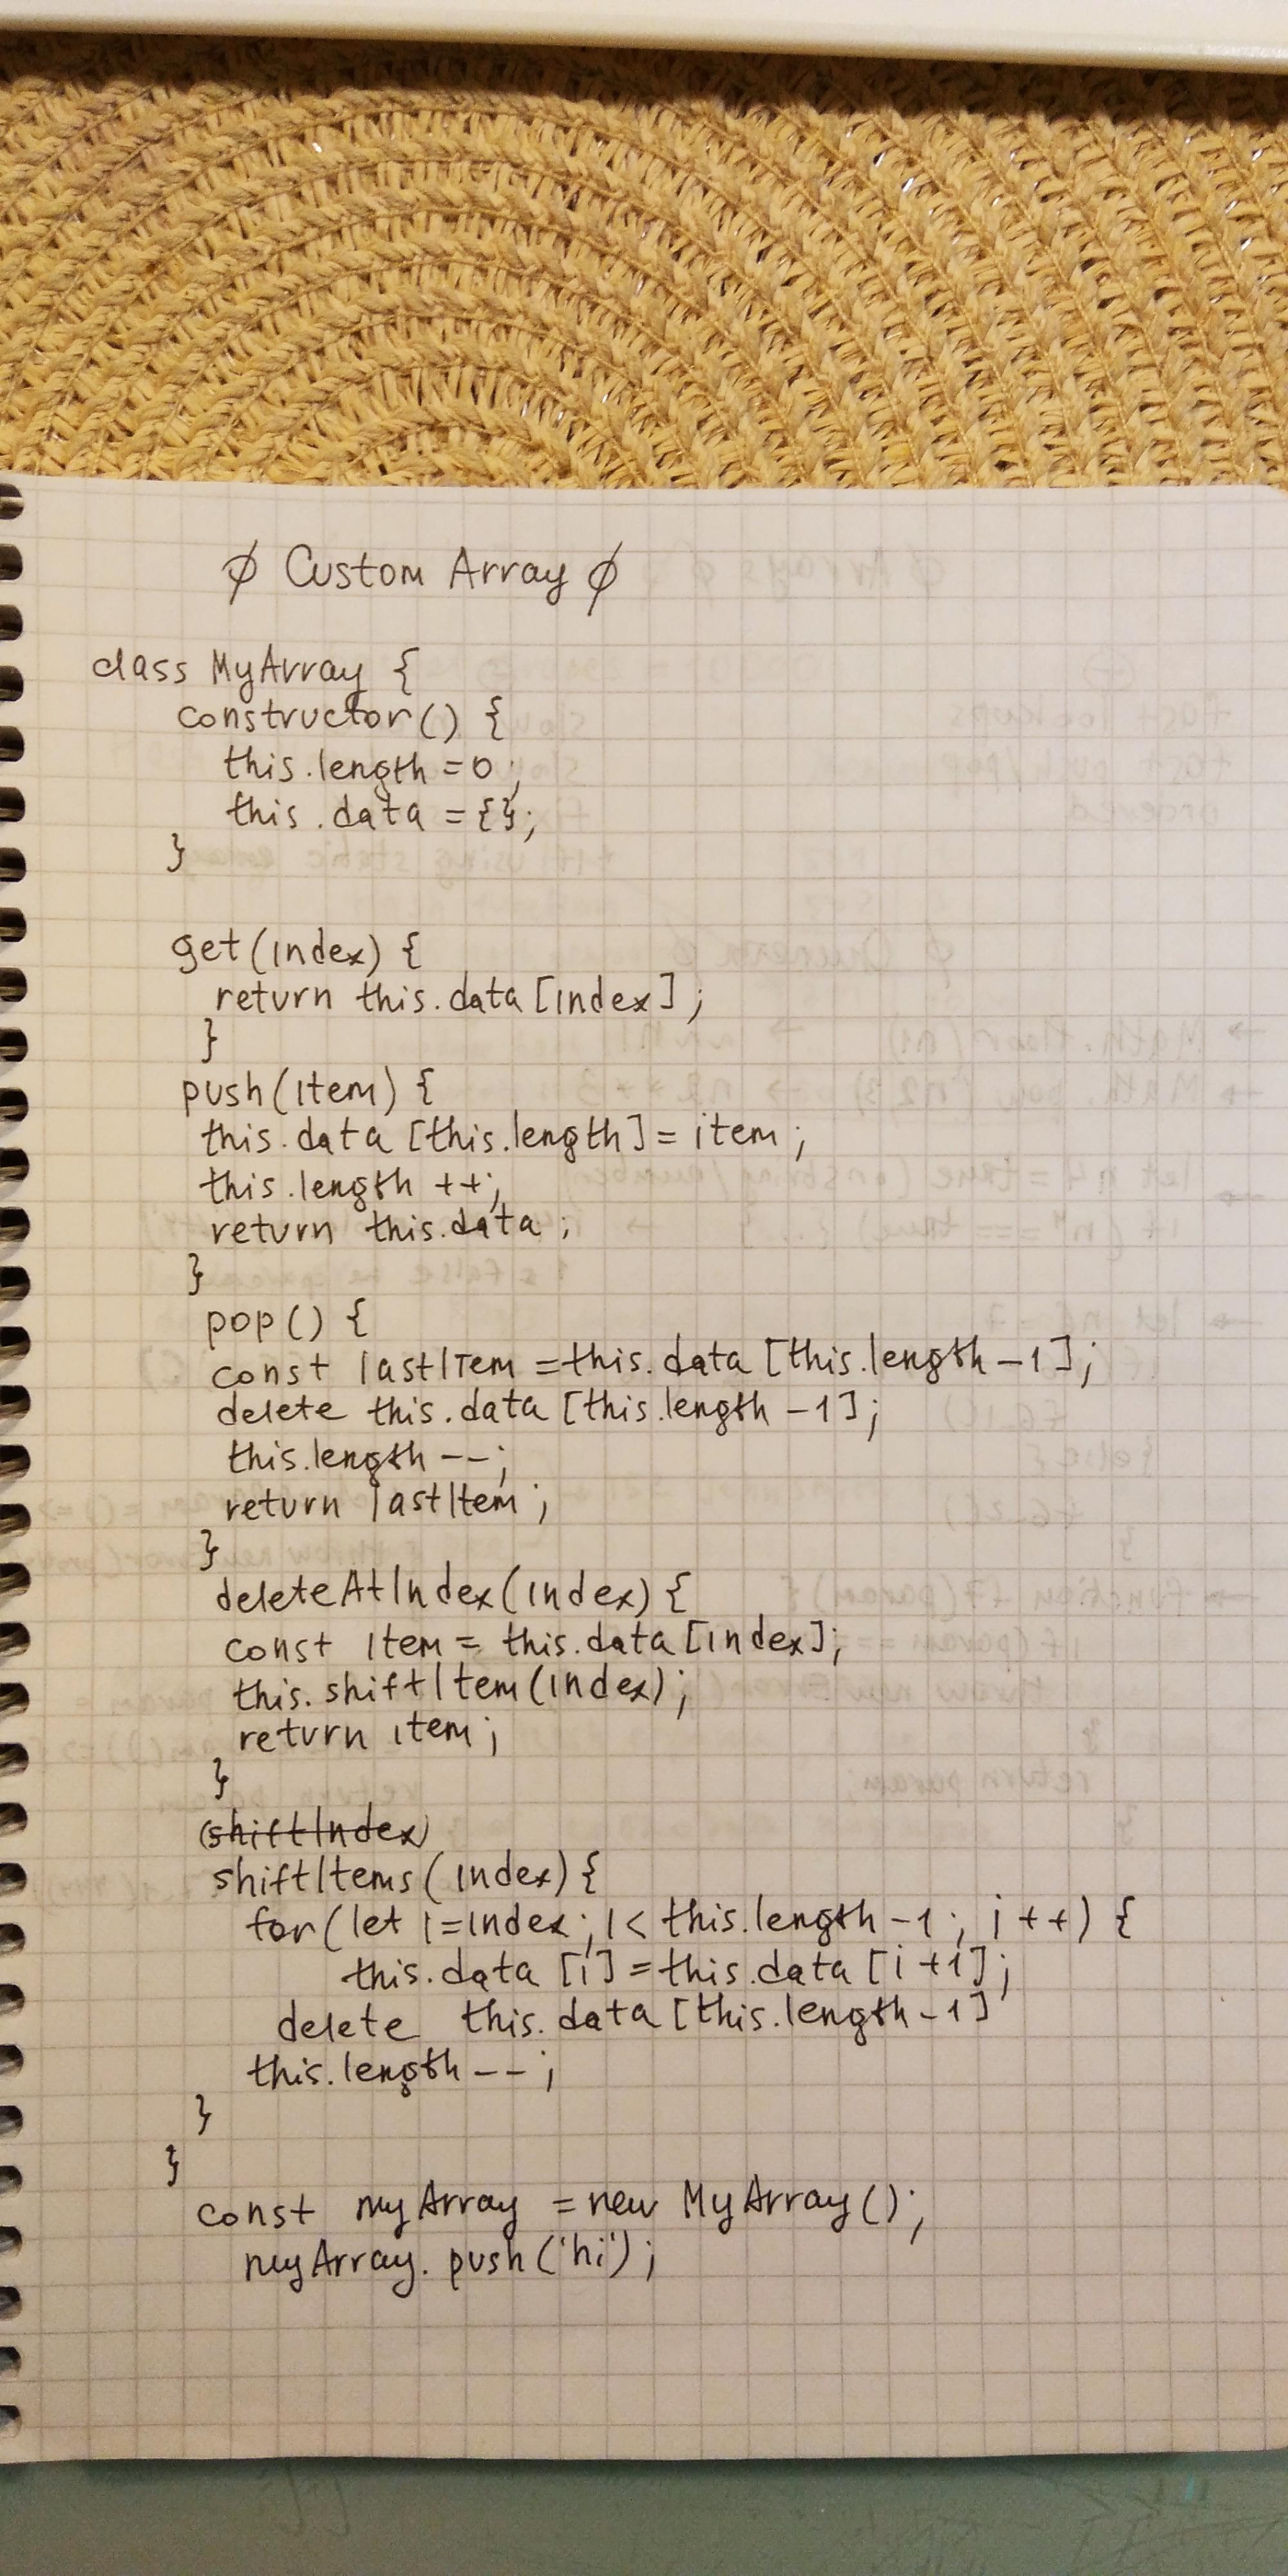 ∅ Custom Array ∅
class MyArray {
constructor() {
this.length = 0;
this.data = {};
}
get(index) {
return this.data[index];
}
push(item) {
this.data[this.length] = item;
this.length ++;
return this.data;
}
pop() {
const lastItem = this.data[this.length - 1];
delete this.data[this.length - 1];
this.length --;
return lastItem;
}
deleteAtIndex(index) {
const item = this.data[index];
this.shiftItem(index);
return item;
}
(shiftIndex)
shiftItems(index) {
for(let i = index; i < this.length - 1; i ++) {
this.data[i] = this.data[i + 1];
delete this.data[this.length - 1]
this.length --;
}
}
const myArray = new MyArray();
myArray.push('hi');